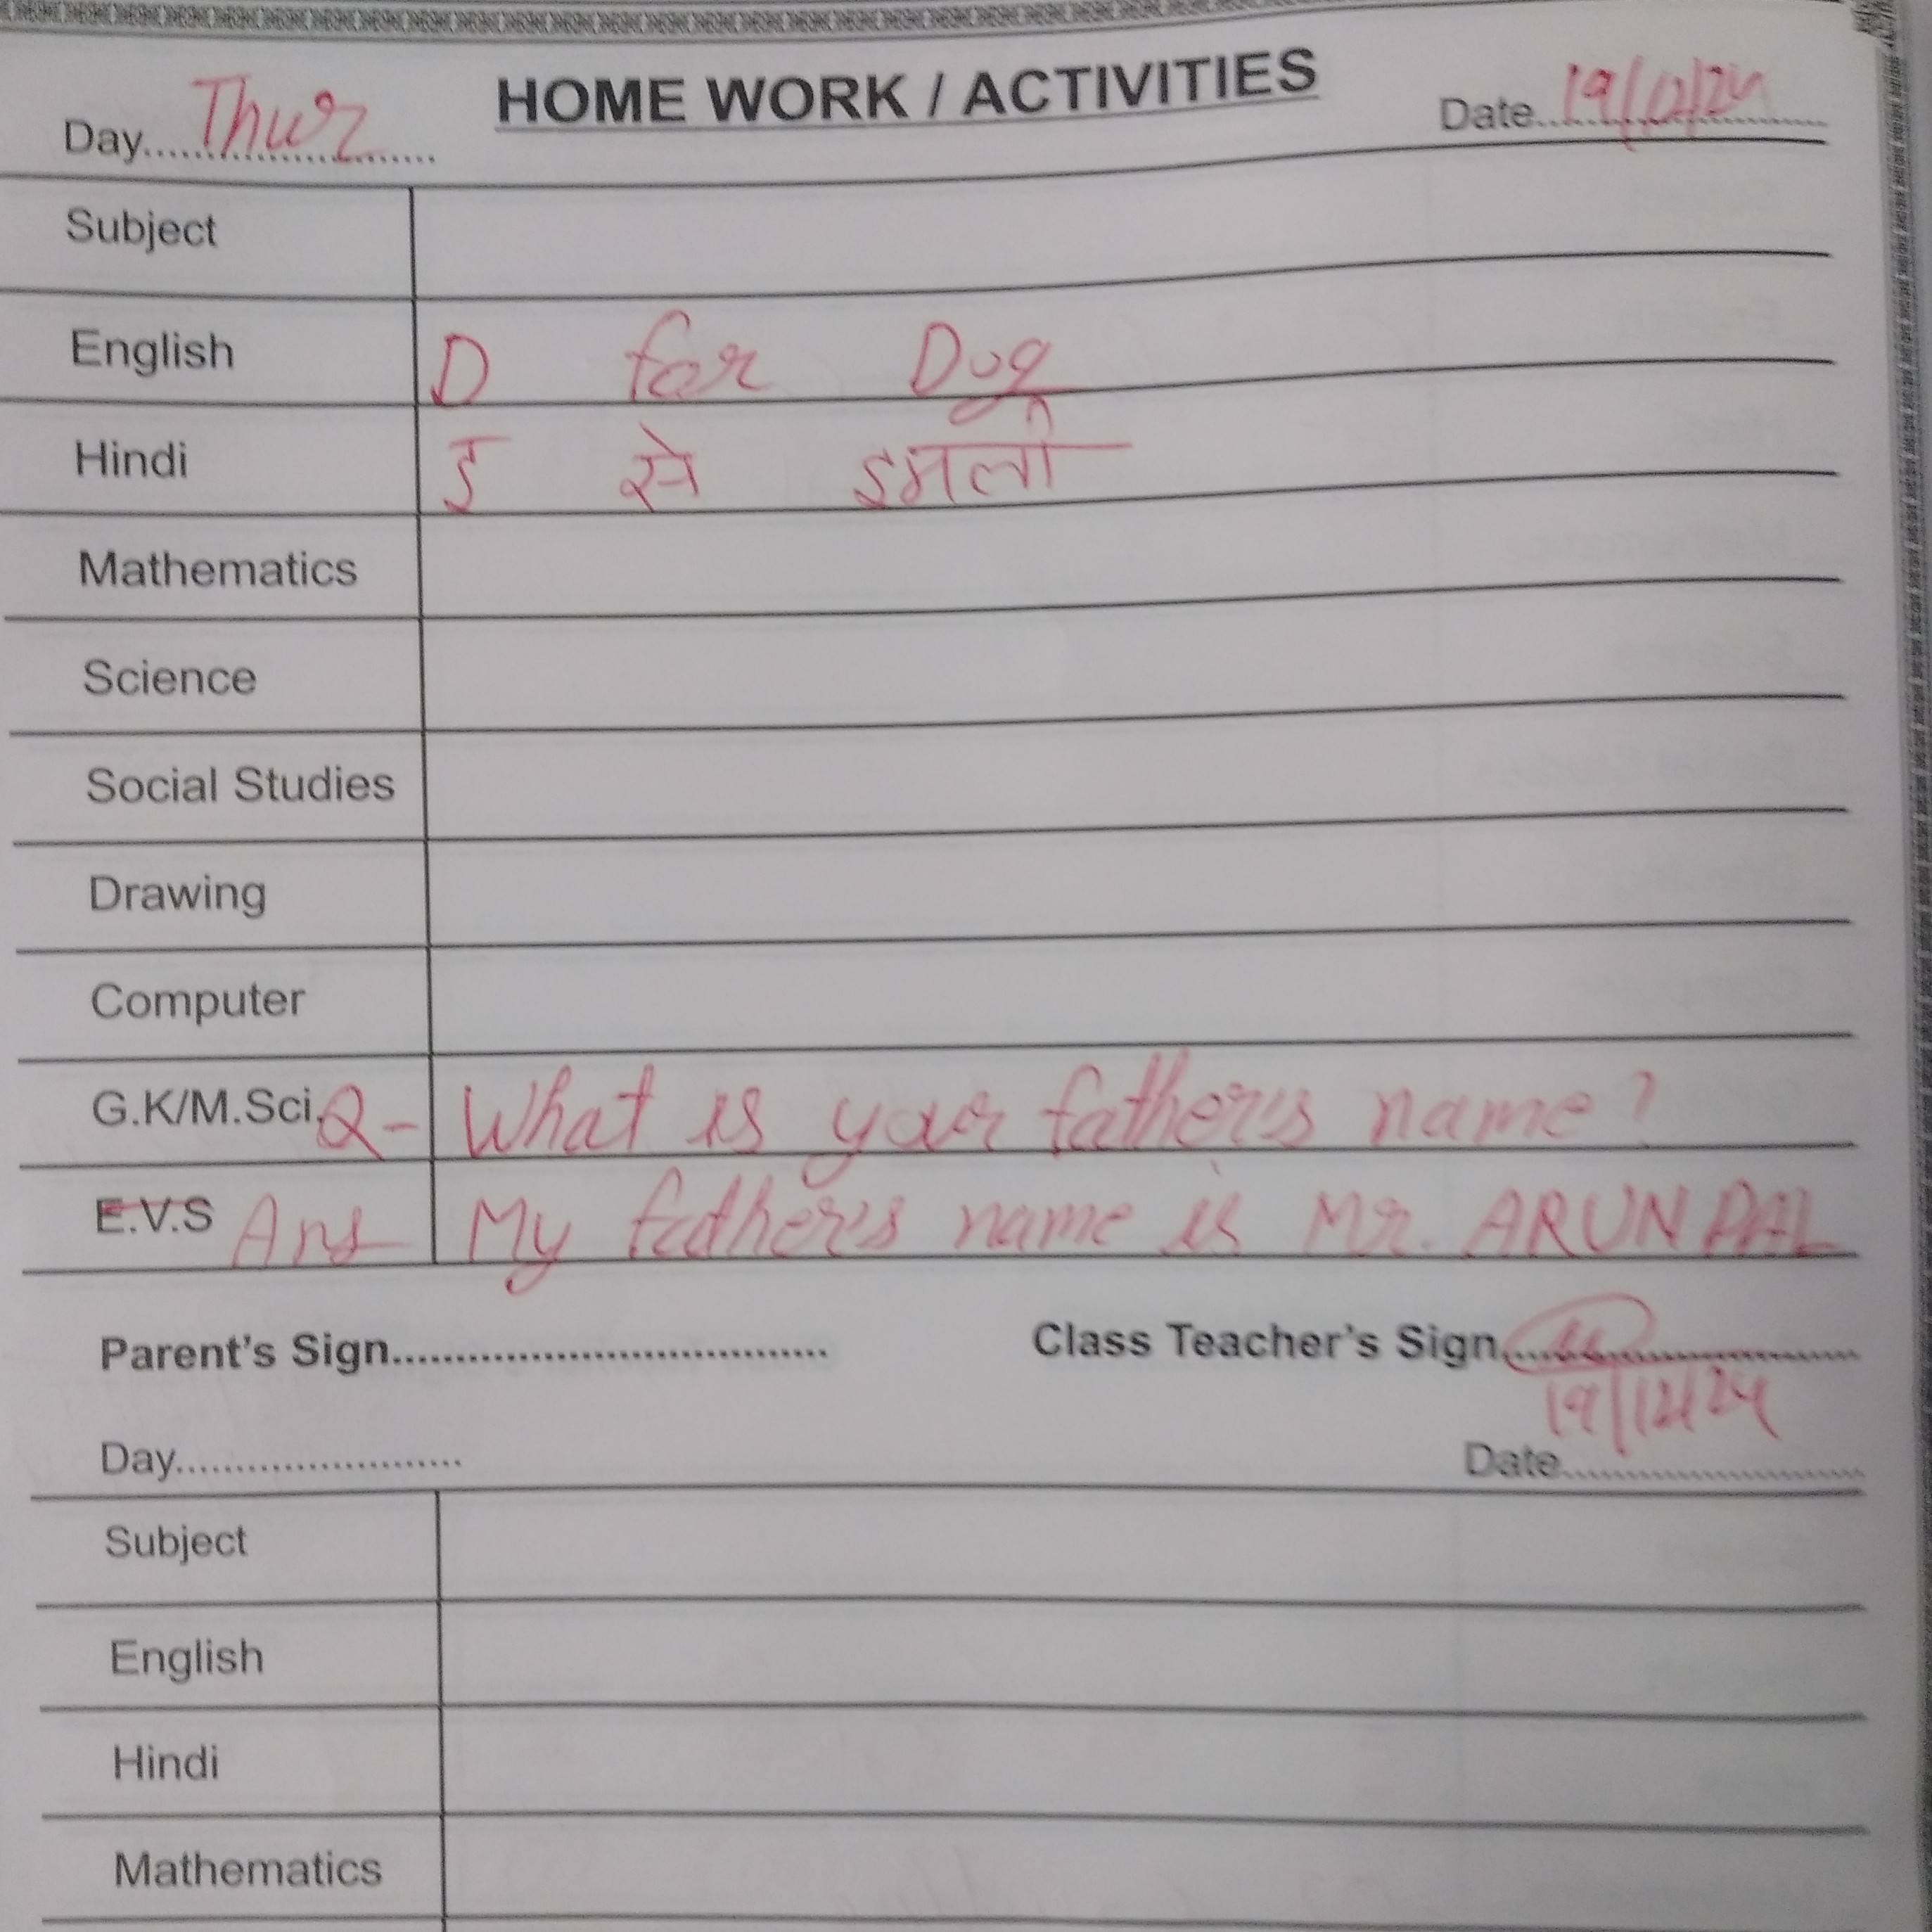 HOME WORK / ACTIVITIES
Day......Thur............ Date..19/12/24............
Subject
English D for Dog
Hindi इ से इमली
Mathematics
Science
Social Studies
Drawing
Computer
G.K/M.Sci. Q- What is your father's name?
E.V.S Ans My father's name is Mr. ARUN PAL
Parent's Sign.................................. Class Teacher's Sign............................
19/12/24
Day........................ Date........................
Subject
English
Hindi
Mathematics